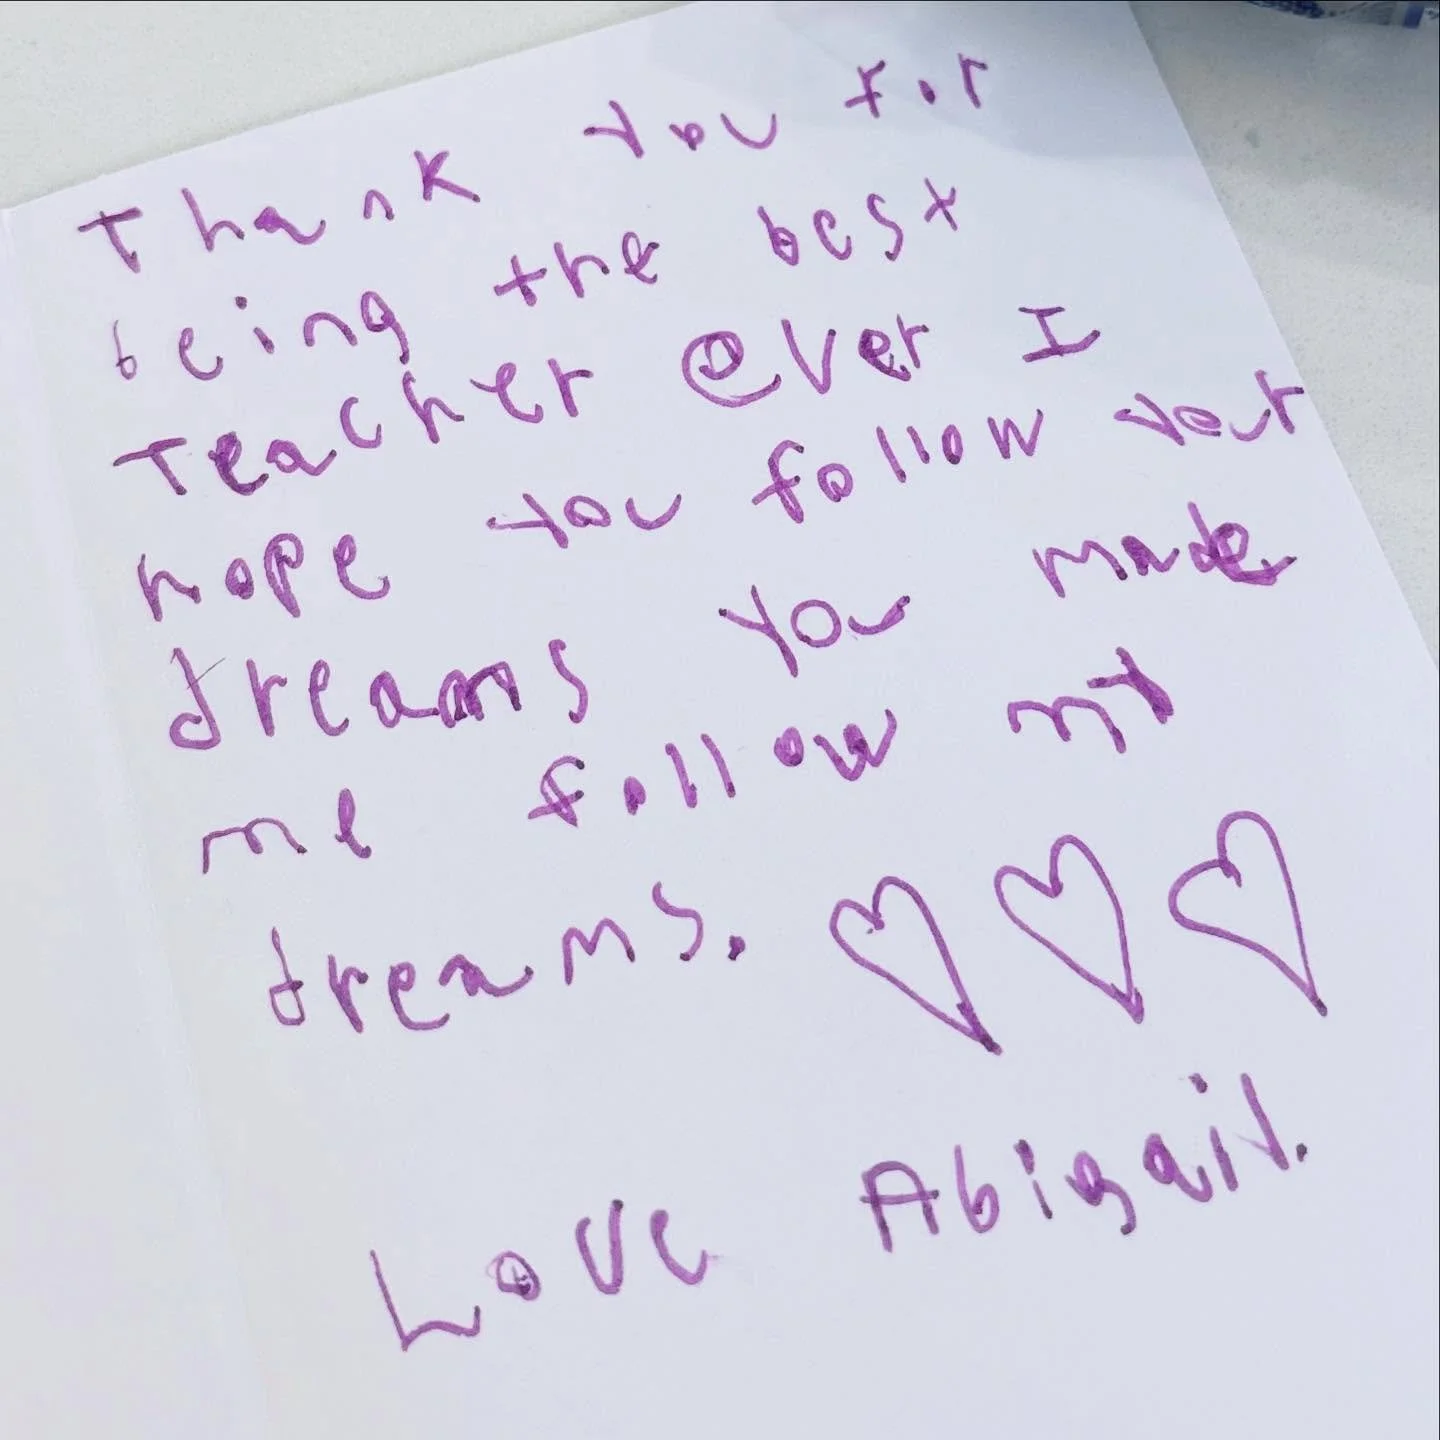 Thank you for
being the best
Teacher ever I
hope you follow your
dreams you made
me follow my
dreams.
Love Abigail.